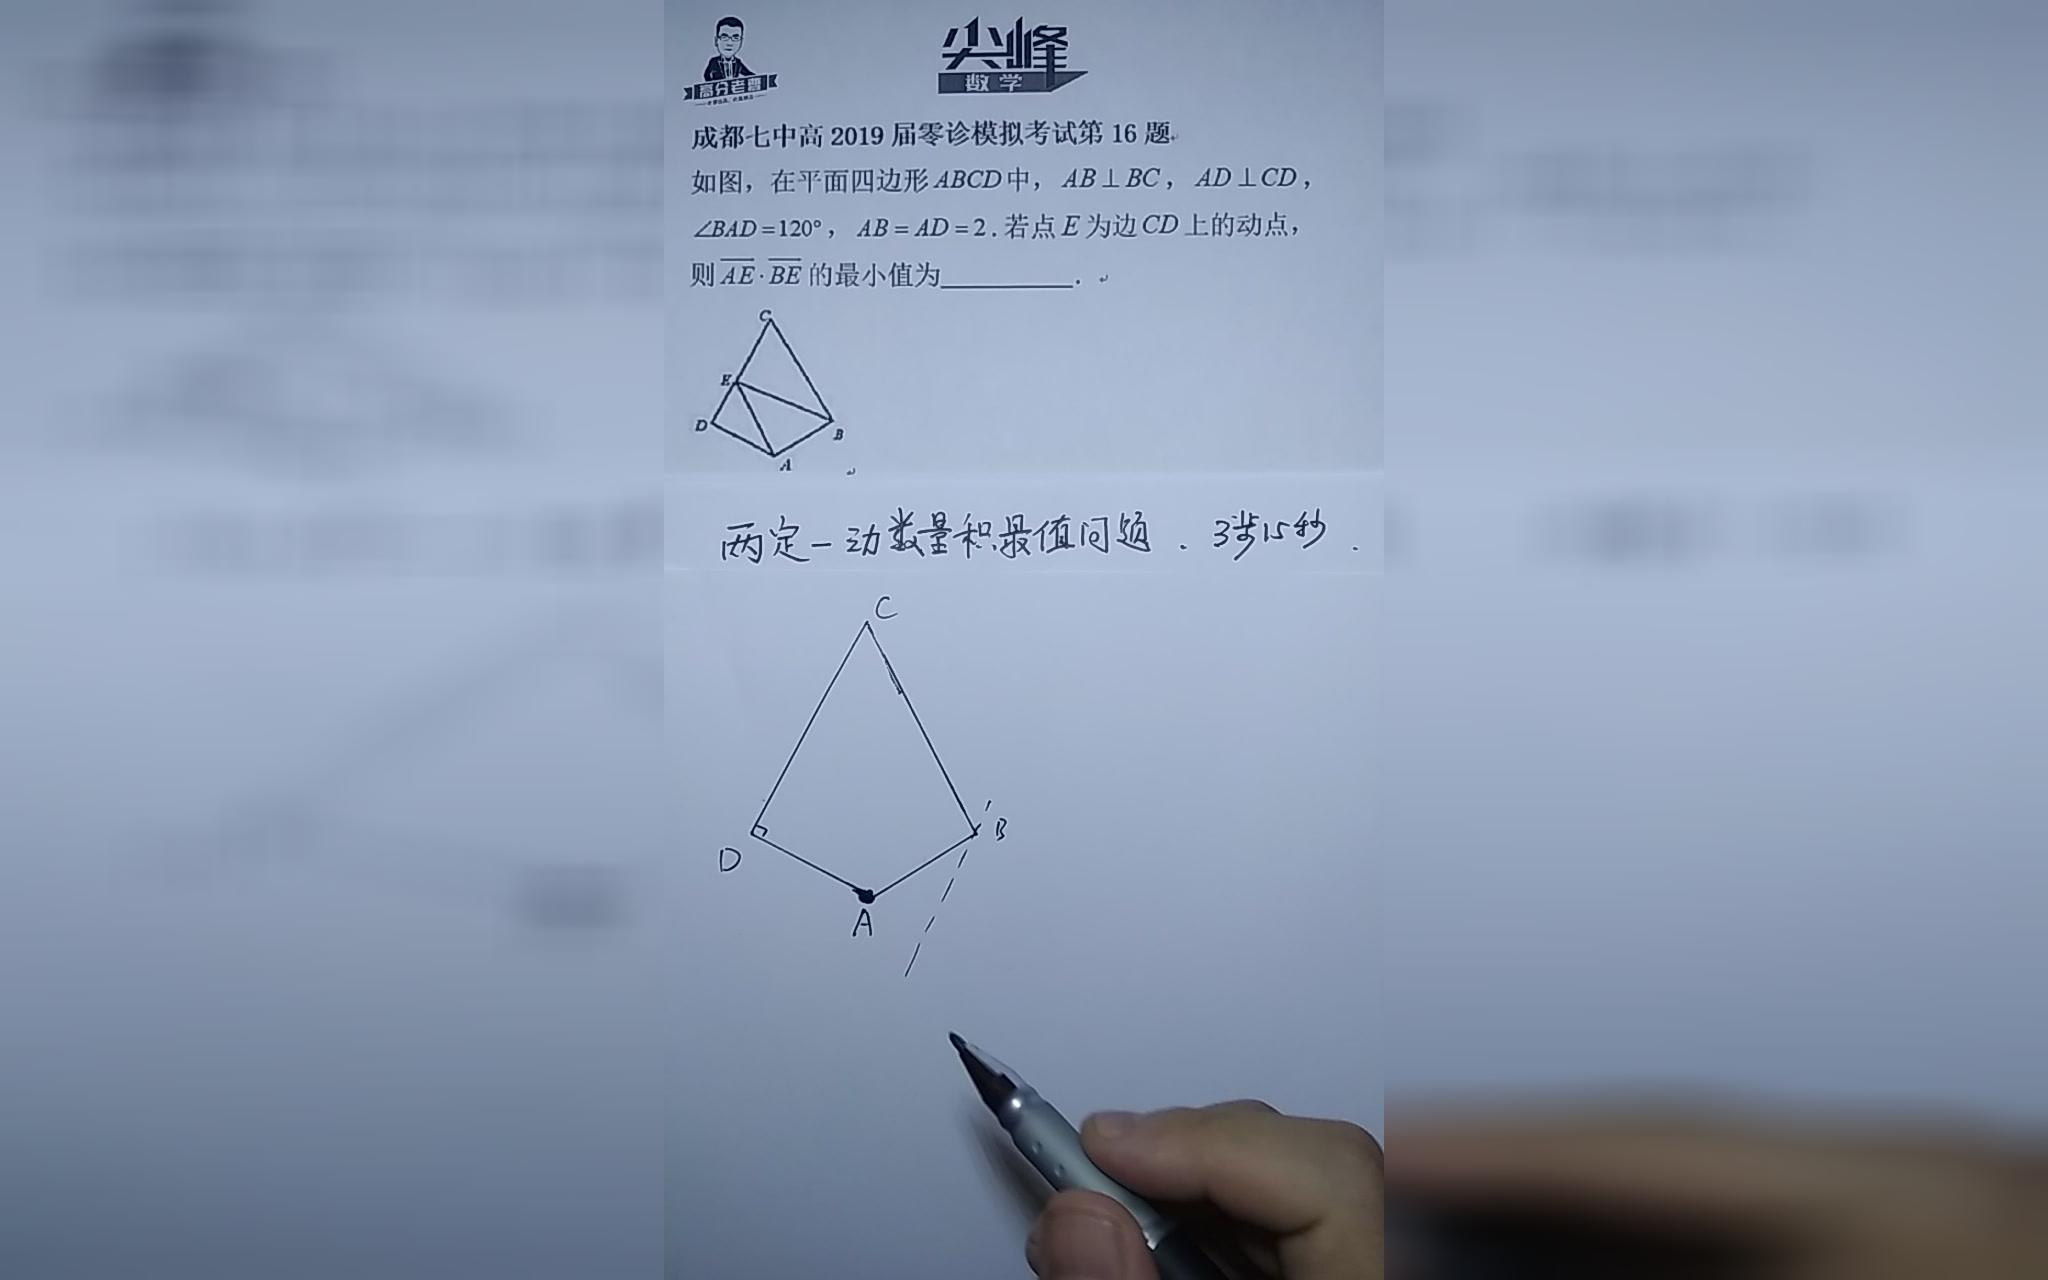 高分老曹
尖峰
数学
成都七中高 2019 届零诊模拟考试第 16 题
如图，在平面四边形 ABCD 中，AB⊥BC，AD⊥CD，
∠BAD=120°，AB=AD=2.若点 E 为边 CD 上的动点，
则 \overline{AE}·\overline{BE} 的最小值为__________.
C
E
D
B
A
两定一动数量积最值问题．3步15秒．
C
B
D
A